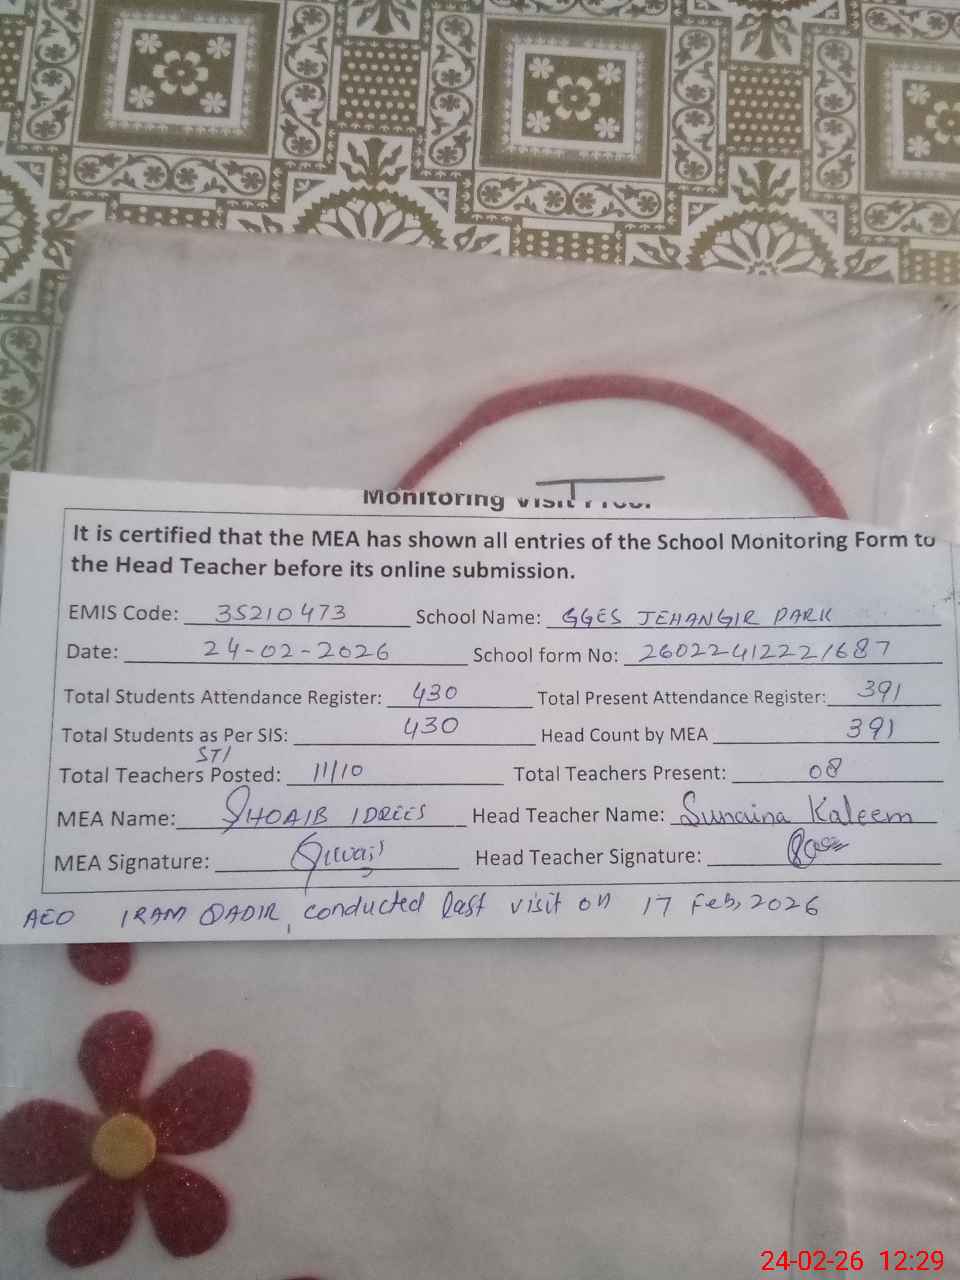 Monitoring Visit Proof
It is certified that the MEA has shown all entries of the School Monitoring Form to
the Head Teacher before its online submission.
EMIS Code: 35210473 School Name: GGES JEHANGIR PARK
Date: 24-02-2026 School form No: 260224122221687
Total Students Attendance Register: 430 Total Present Attendance Register: 391
Total Students as Per SIS: 430 Head Count by MEA 391
STI
Total Teachers Posted: 11/10 Total Teachers Present: 08
MEA Name: SHOAIB IDREES Head Teacher Name: Sunaina Kaleem
MEA Signature: Head Teacher Signature:
AEO IRAM QADIR, conducted last visit on 17 Feb, 2026
24-02-26 12:29